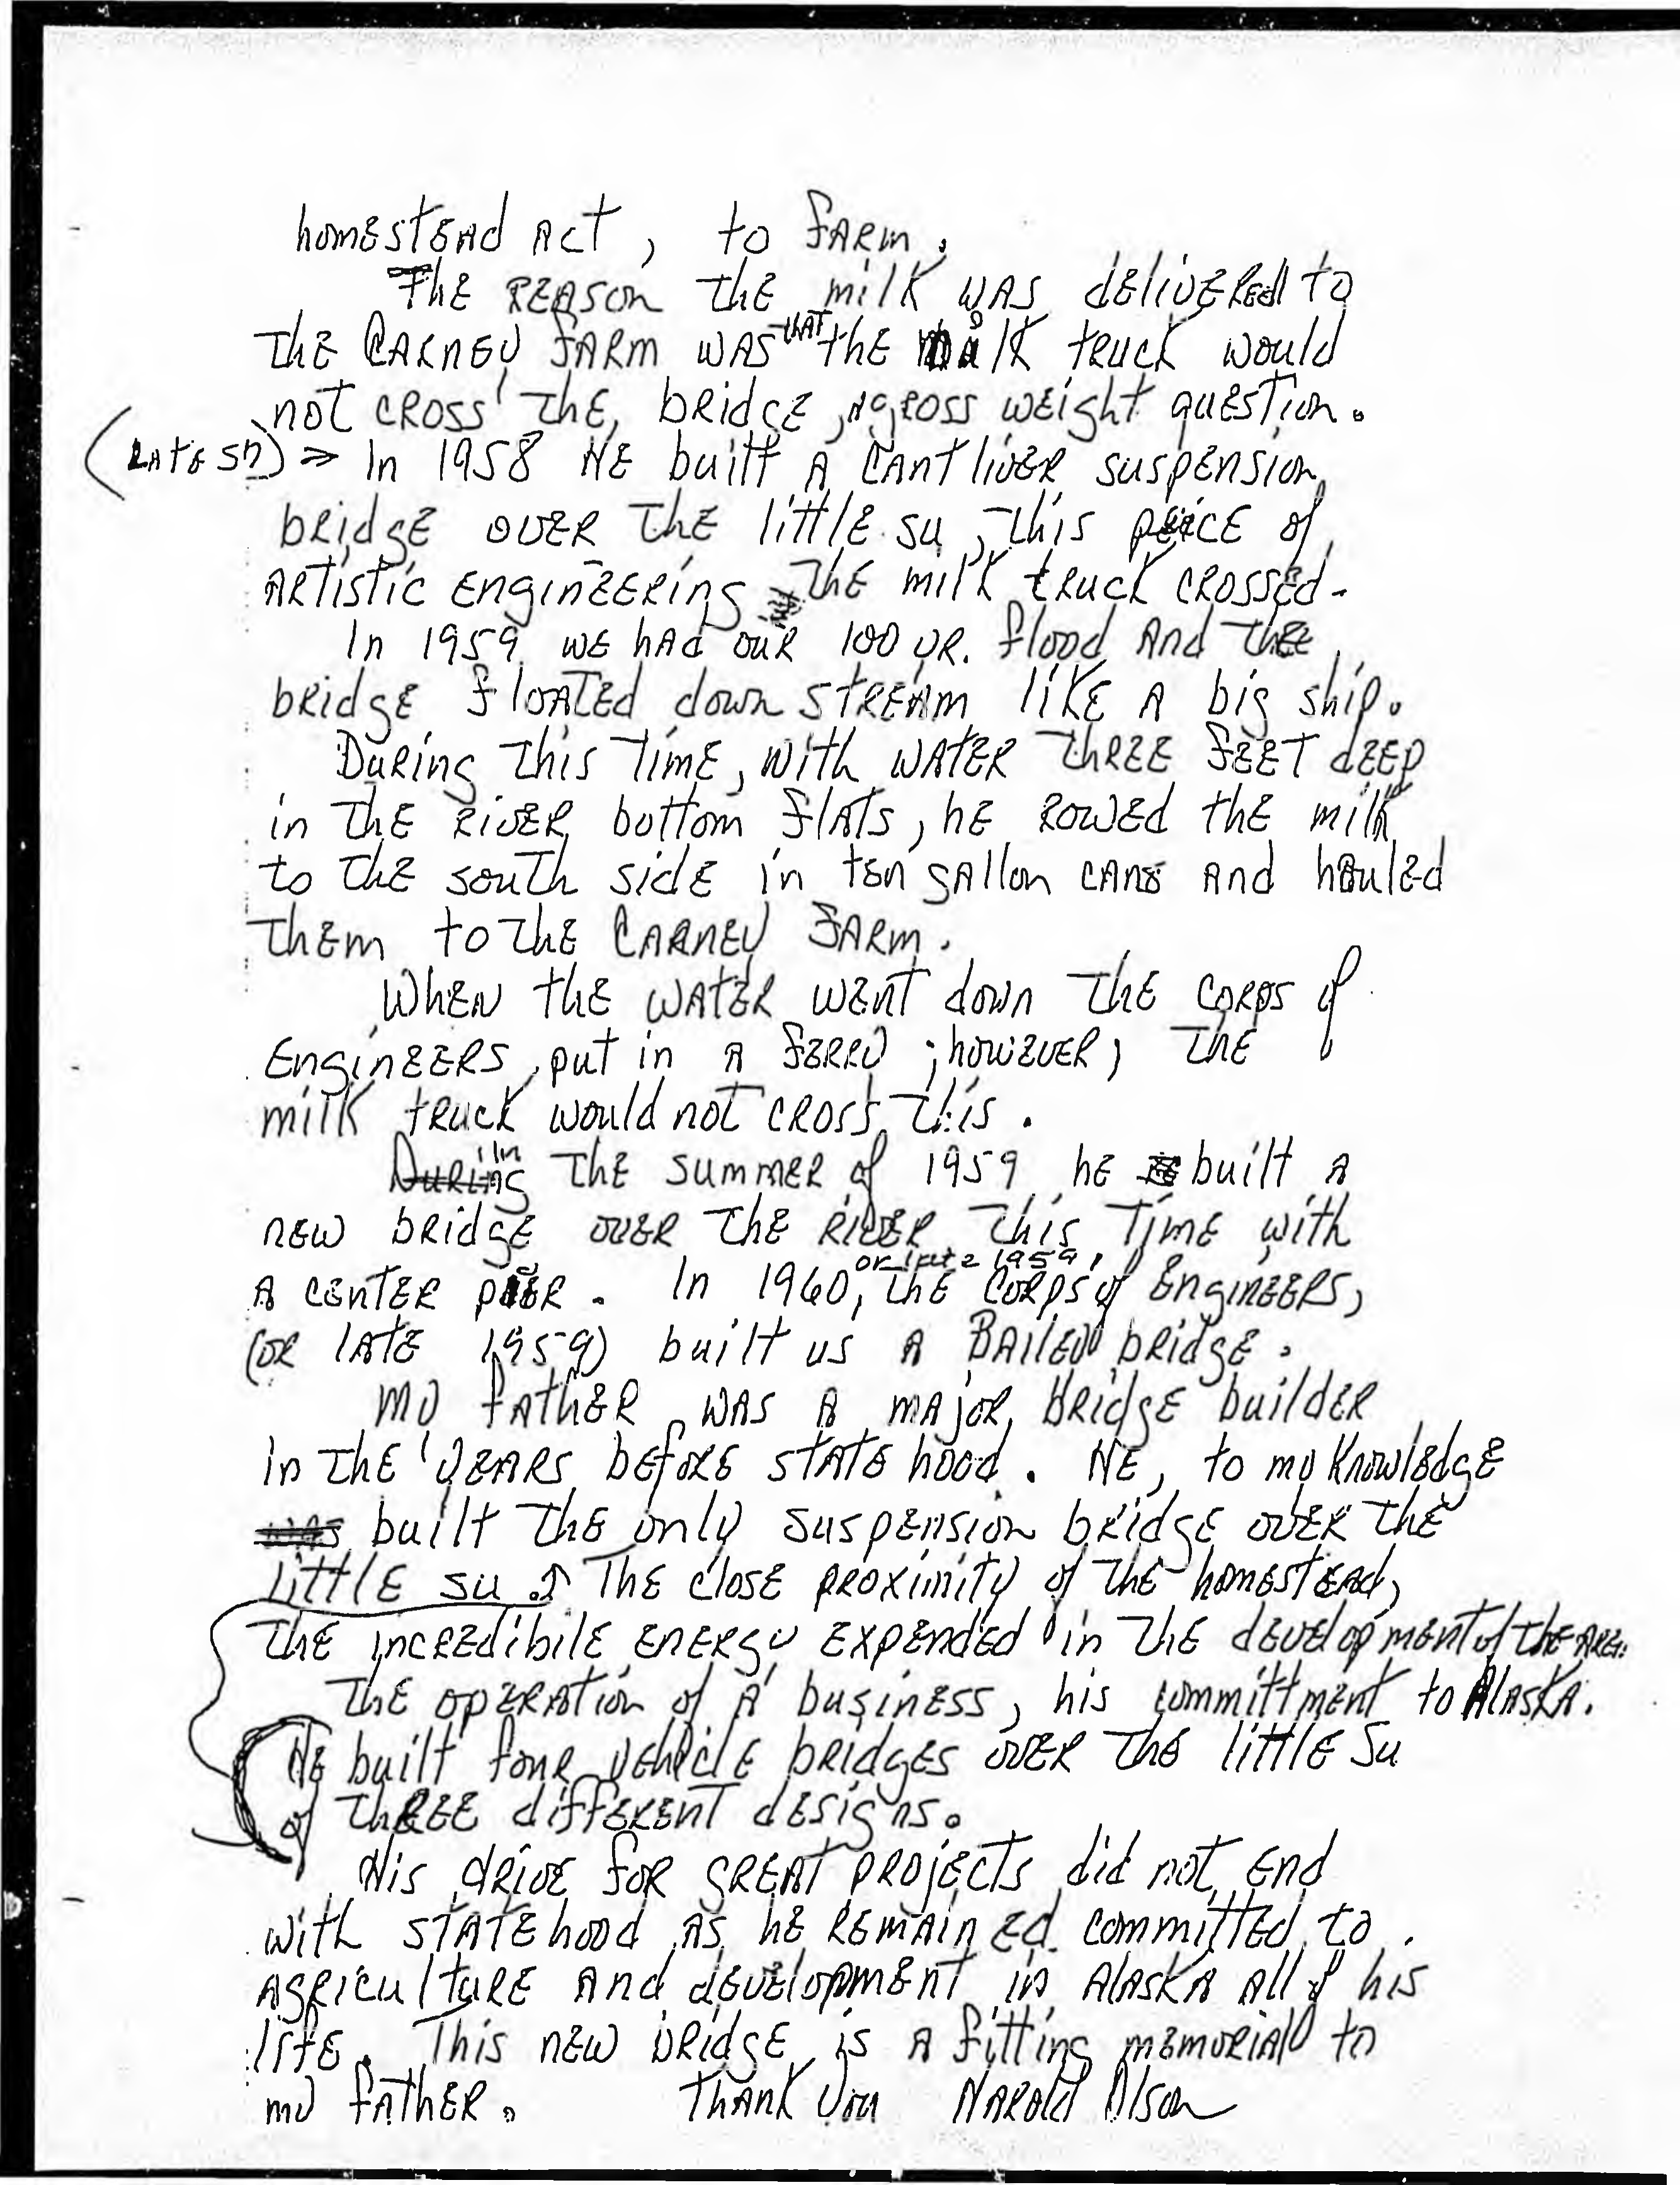 homestead act, to farm.
The reason the milk was delivered to
the Carney farm was that the milk truck would
not cross the bridge, a gross weight question.
(Late 50) ⇒ In 1958 he built a cantliver suspension
bridge over the little su, this peice of
artistic engineering the milk truck crossed.
In 1959 we had our 100 yr. flood and the
bridge floated down stream like a big ship.
During this time, with water three feet deep
in the river bottom flats, he rowed the milk
to the south side in ten gallon cans and hauled
them to the Carney farm.
When the water went down the corps of
Engineers put in a ferry; however, the
milk truck would not cross this.
~~During~~ in the summer of 1959 he built a
new bridge over the river this time with
a center pier. In 1960, or late 1959, the Corps of Engineers,
(or late 1959) built us a Bailey bridge.
My father was a major bridge builder
in the years before statehood. He, to my knowledge
~~was~~ built the only suspension bridge over the
little su. The close proximity of the homestead,
the incredibile energy expended in the development of the area.
The operation of a business, his committment to Alaska.
He built four vehicle bridges over the little su
of three different designs.
His drive for great projects did not end
with statehood as he remained committed to
agriculture and development in Alaska all of his
life. This new bridge is a fitting memorial to
my father. Thank you Harold Olson